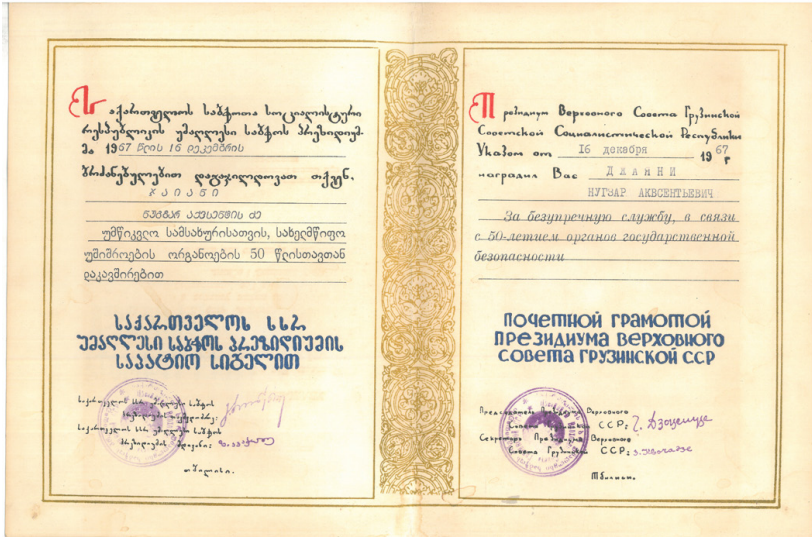 საქართველოს საბჭოთა სოციალისტური
რესპუბლიკის უმაღლესი საბჭოს პრეზიდიუმ-
მა 1967 წლის 16 დეკემბრის
ბრძანებულებით დაგაჯილდოვათ თქვენ.
ჯაიანი
ნუგზარ აქსენტის ძე
უმწიკვლო სამსახურისათვის, სახელმწიფო
უშიშროების ორგანოების 50 წლისთავთან
დაკავშირებით
საქართველოს სსრ
უმაღლესი საბჭოს პრეზიდიუმის
საპატიო სიგელით
საქართველოს სსრ უმაღლესი საბჭოს
პრეზიდიუმის თავმჯდომარე:
საქართველოს სსრ უმაღლესი საბჭოს
პრეზიდიუმის მდივანი:
თბილისი.
Президиум Верховного Совета Грузинской
Советской Социалистической Республики
Указом от 16 декабря 1967 г
наградил Вас Джаини
НУГЗАР АКВСЕНТЬЕВИЧ
За безупречную службу, в связи
с 50-летием органов государственной
безопасности
ПОЧЕТНОЙ ГРАМОТОЙ
ПРЕЗИДИУМА ВЕРХОВНОГО
СОВЕТА ГРУЗИНСКОЙ ССР
Председатель Президиума Верховного
Совета Грузинской ССР: Г. Дзоценидзе
Секретарь Президиума Верховного
Совета Грузинской ССР:
Тбилиси.